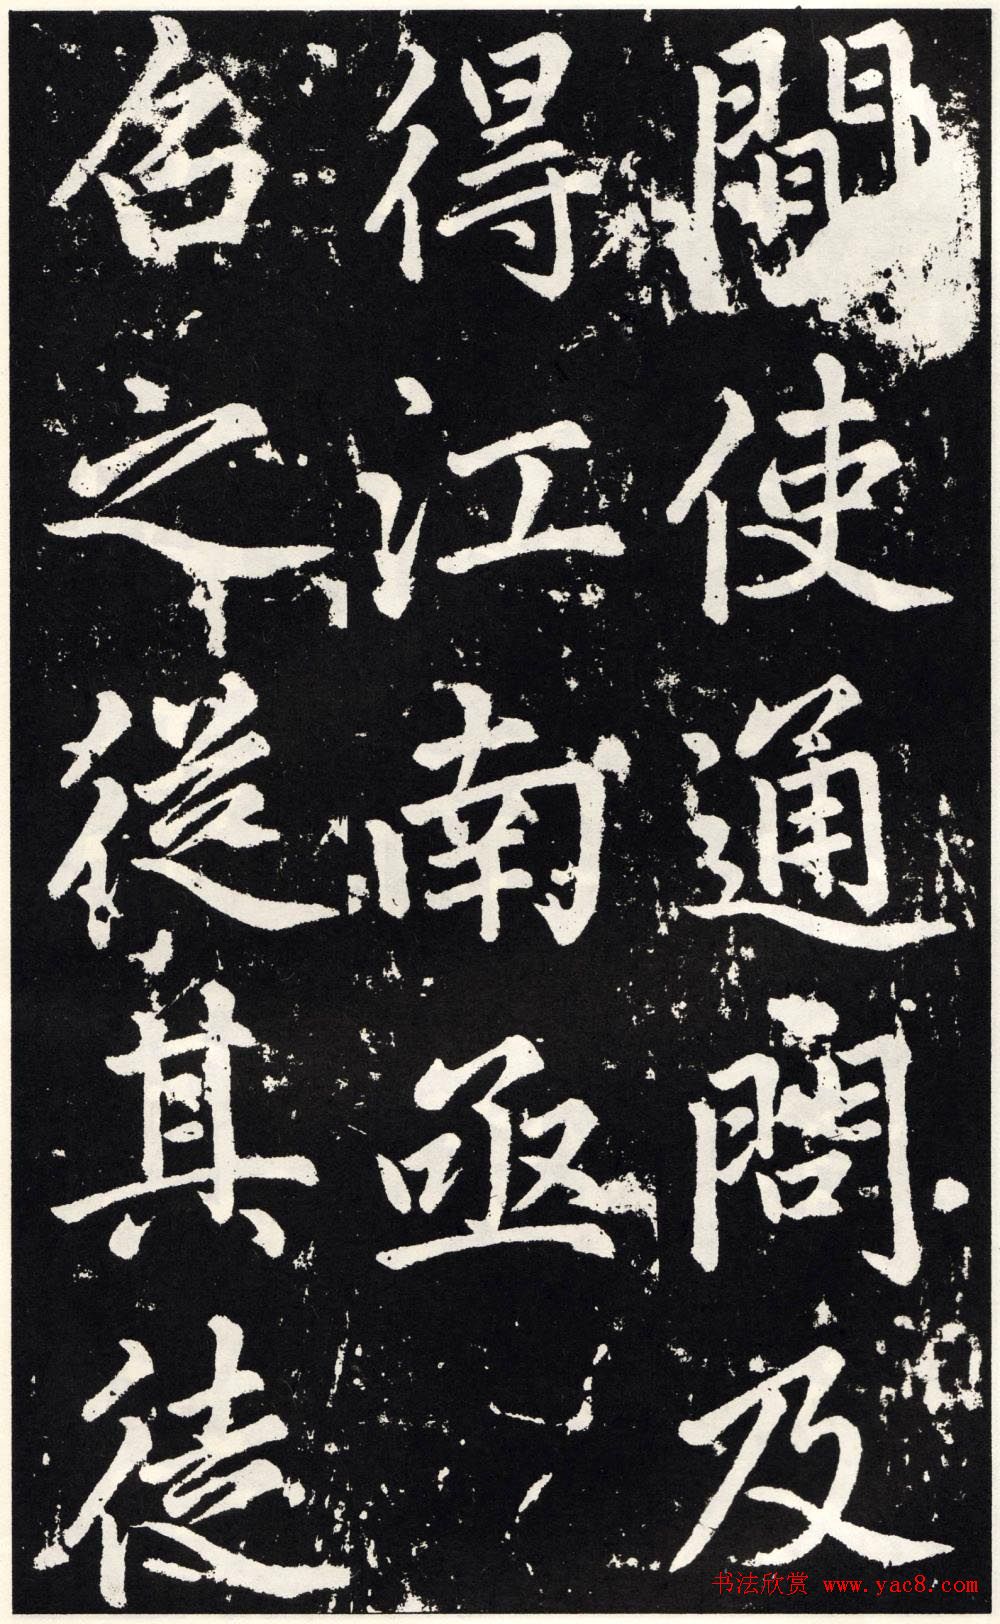 間使通問及
得江南亟
召之從其徒
书法欣赏 www.yac8.com